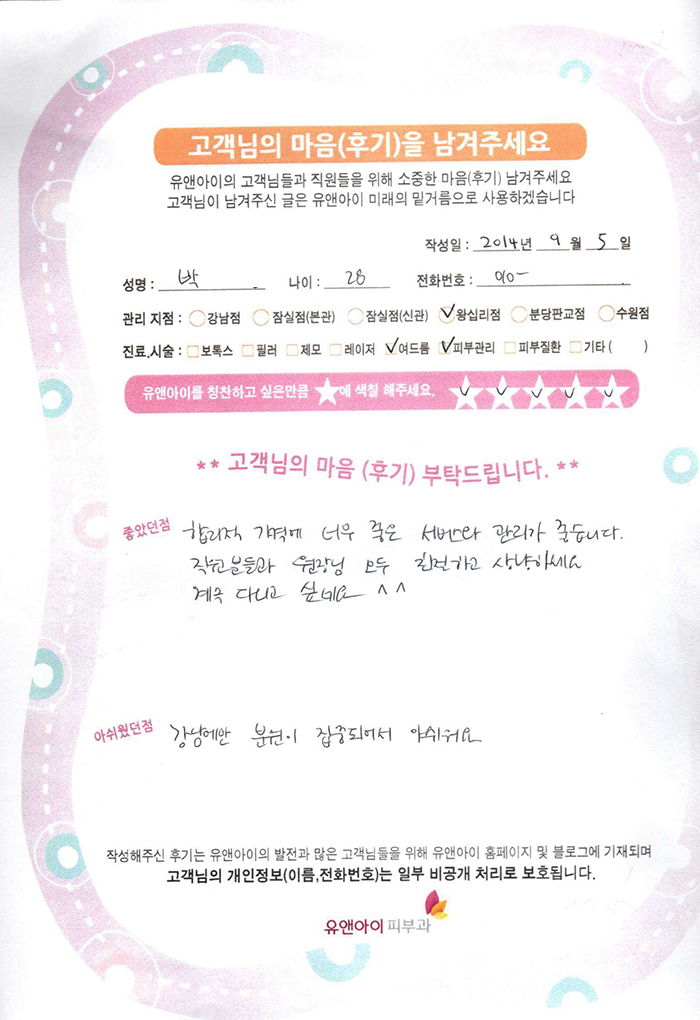 고객님의 마음(후기)을 남겨주세요
유앤아이의 고객님들과 직원들을 위해 소중한 마음(후기) 남겨주세요
고객님이 남겨주신 글은 유앤아이 미래의 밑거름으로 사용하겠습니다
작성일 : 2014 년 9 월 5 일
성명 : 박 나이 : 28 전화번호 : 010-
관리 지점 : 강남점 잠실점(본관) 잠실점(신관) 왕십리점 분당판교점 수원점
진료,시술 : 보톡스 필러 제모 레이저 여드름 피부관리 피부질환 기타 ( )
유앤아이를 칭찬하고 싶은만큼 ★에 색칠 해주세요.
** 고객님의 마음 (후기) 부탁드립니다. **
좋았던점 합리적 가격에 너무 좋은 서비스와 관리가 좋습니다.
직원분들과 원장님 모두 친절하고 상냥하세요
계속 다니고 싶네요 ^^
아쉬웠던점 강남에만 분원이 집중되어서 아쉬워요
작성해주신 후기는 유앤아이의 발전과 많은 고객님들을 위해 유앤아이 홈페이지 및 블로그에 기재되며
고객님의 개인정보(이름,전화번호)는 일부 비공개 처리로 보호됩니다.
유앤아이 피부과